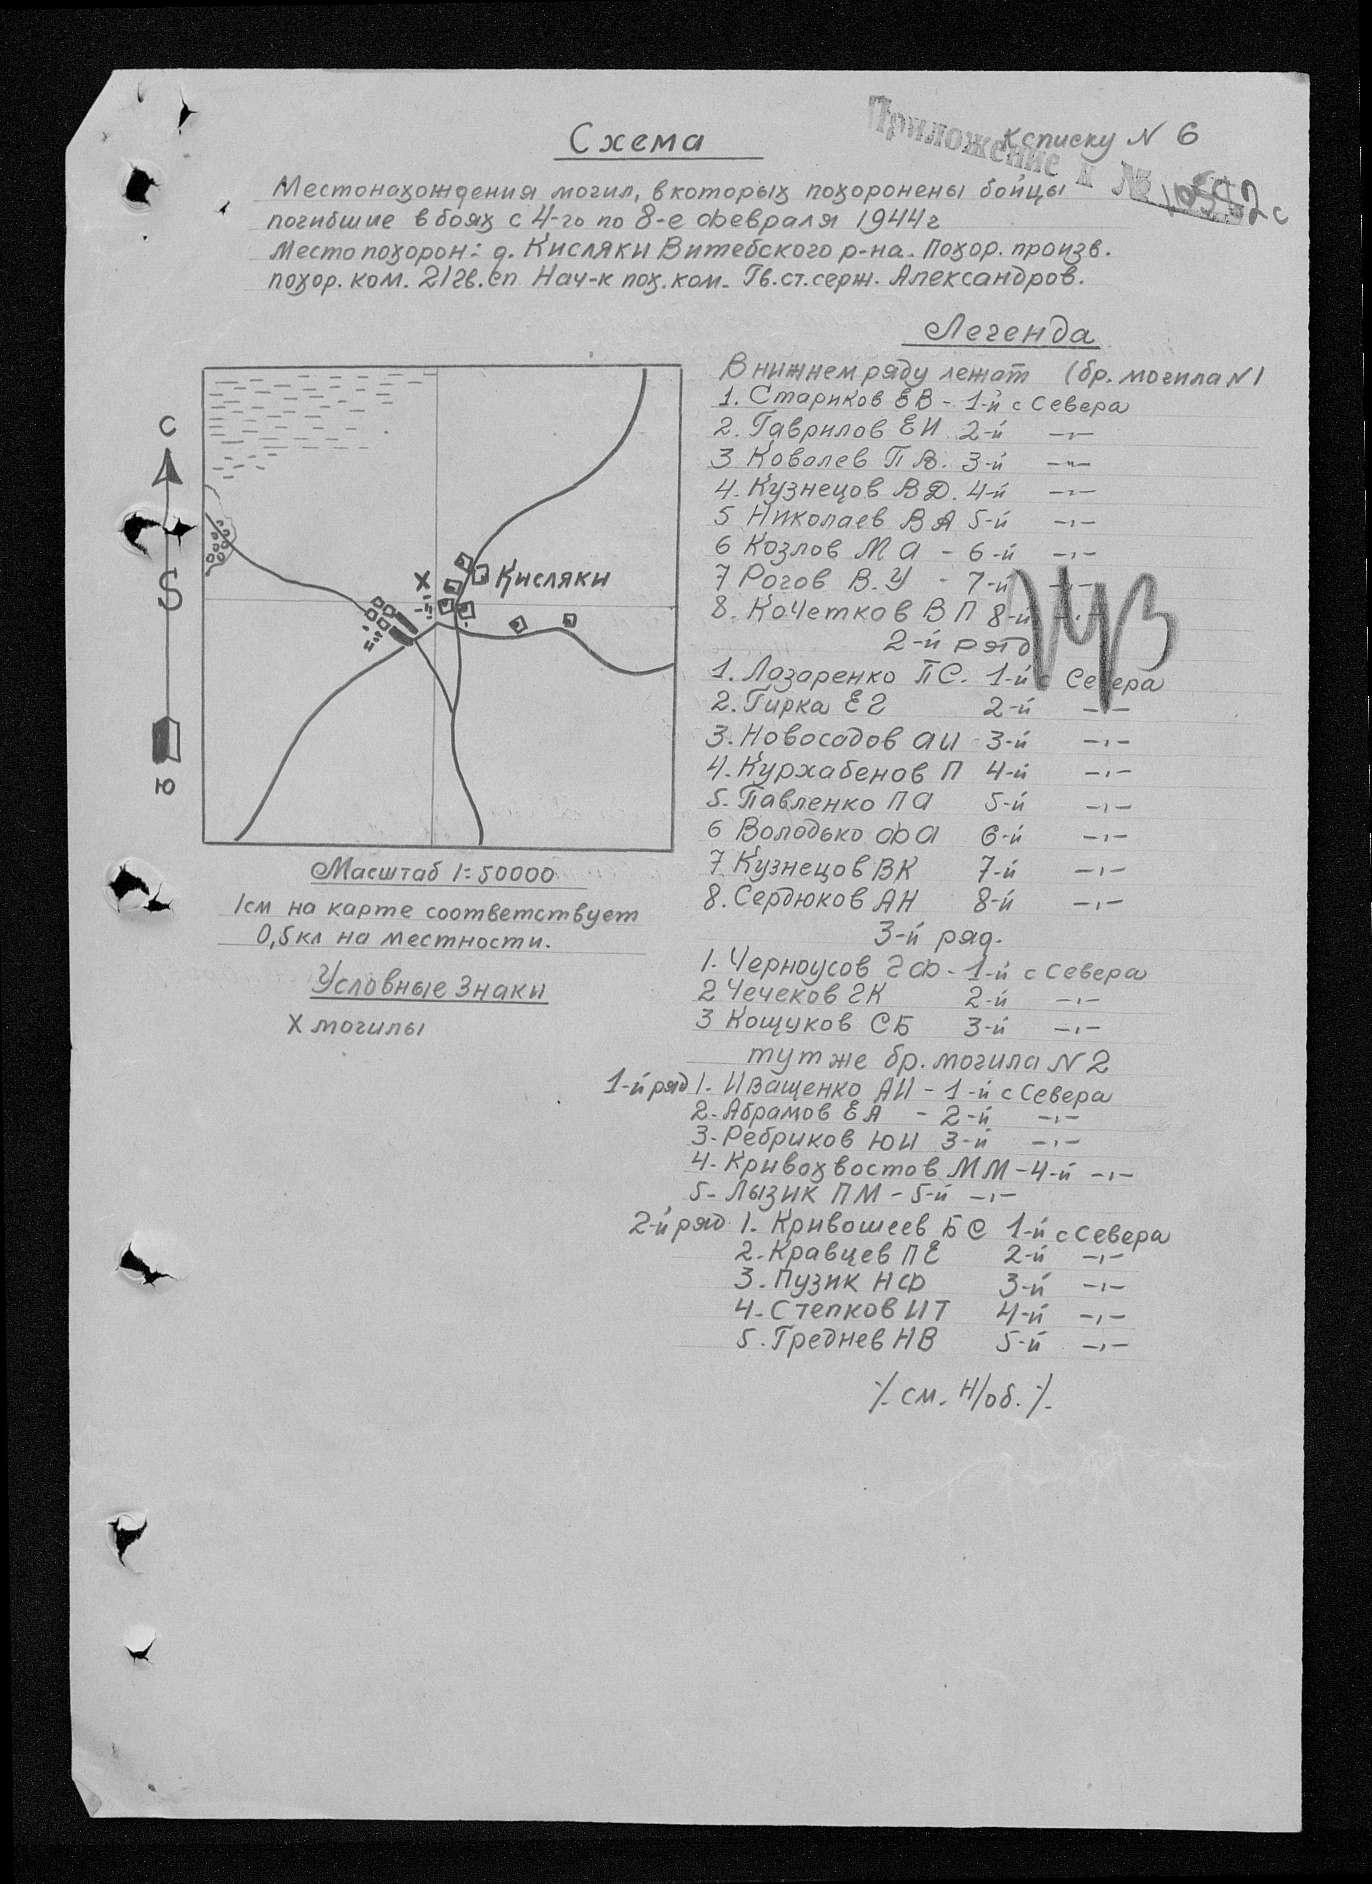 Схема
Приложение к №
к списку N 6
Местонахождения могил, в которых похоронены бойцы
погибшие в боях с 4-го по 8-е февраля 1944г
Место похорон: д. Кисляки Витебского р-на. Похор. произв.
похор. ком. 21 гв. сп Нач-к пох. ком. Гв. ст. серж. Александров.
Легенда
В нижнем ряду лежат (бр. могила N 1
1. Стариков ЕВ - 1-й с Севера
2. Гаврилов ЕИ 2-й -"-
3 Ковалев ПВ. 3-й -"-
4. Кузнецов ВД. 4-й -"-
5 Николаев ВА 5-й -"-
6 Козлов МА - 6-й -"-
7 Рогов В.У - 7-й -"-
8. Кочетков ВП 8-й -"-
2-й ряд
1. Лазаренко ПС. 1-й с Севера
2. Гирка ЕГ 2-й -"-
3. Новосадов АИ 3-й -"-
4. Курхабенов П 4-й -"-
5. Павленко ПА 5-й -"-
6 Володько ФА 6-й -"-
7 Кузнецов ВК 7-й -"-
8. Сердюков АН 8-й -"-
3-й ряд.
1. Черноусов ГФ - 1-й с Севера
2 Чечеков ГК 2-й -"-
3 Кощуков СБ 3-й -"-
тут же бр. могила N 2
1-й ряд 1. Иващенко АИ - 1-й с Севера
2. Абрамов ЕА - 2-й -"-
3. Ребриков ЮИ 3-й -"-
4. Кривохвостов ММ - 4-й -"-
5. Лызик ПМ - 5-й -"-
2-й ряд 1. Кривошеев БС 1-й с Севера
2. Кравцев ПЕ 2-й -"-
3. Пузик НФ 3-й -"-
4. Степков ИТ 4-й -"-
5. Греднев НВ 5-й -"-
/. см. н/об. /.
С
Ю
Кисляки
Х
Масштаб 1:50000
1см на карте соответствует
0,5кл на местности.
Условные Знаки
Х могилы